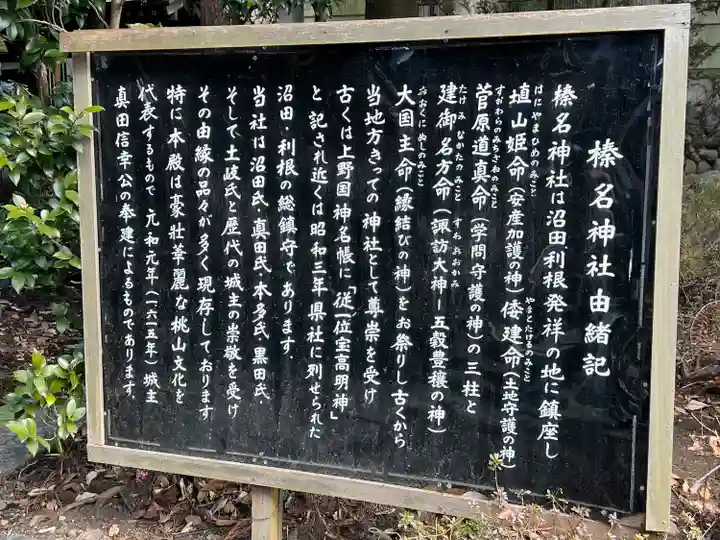 榛名神社由緒記
榛名神社は沼田、利根発祥の地に鎮座し
埴山姫命（安産加護の神）倭建命（土地守護の神）
はにやまひめのみこと やまとたけるのみこと
菅原道真命（学問守護の神）の三柱と
すがわらのみちざねのみこと
建御名方命（諏訪大神－五穀豊穣の神）
たけみなかたのみこと すわおおかみ
大国主命（縁結びの神）をお祭りし古くから
おおくにぬしのみこと
当地方きっての神社として尊崇を受け
古くは上野国神名帳に「従一位宝高明神」
と記され近くは昭和三年県社に列せられた
沼田・利根の総鎮守であります。
当社は沼田氏・真田氏・本多氏・黒田氏
そして土岐氏と歴代の城主の崇敬を受け
その由縁の品々が多く現存しております
特に本殿は豪壮華麗な桃山文化を
代表するもので 元和元年（一六一五年）城主
真田信幸公の奉建によるものであります。